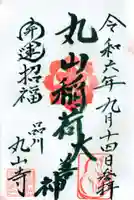 令和六年九月十四日参拝
丸山稲荷大善神
開運招福
品川
丸山寺